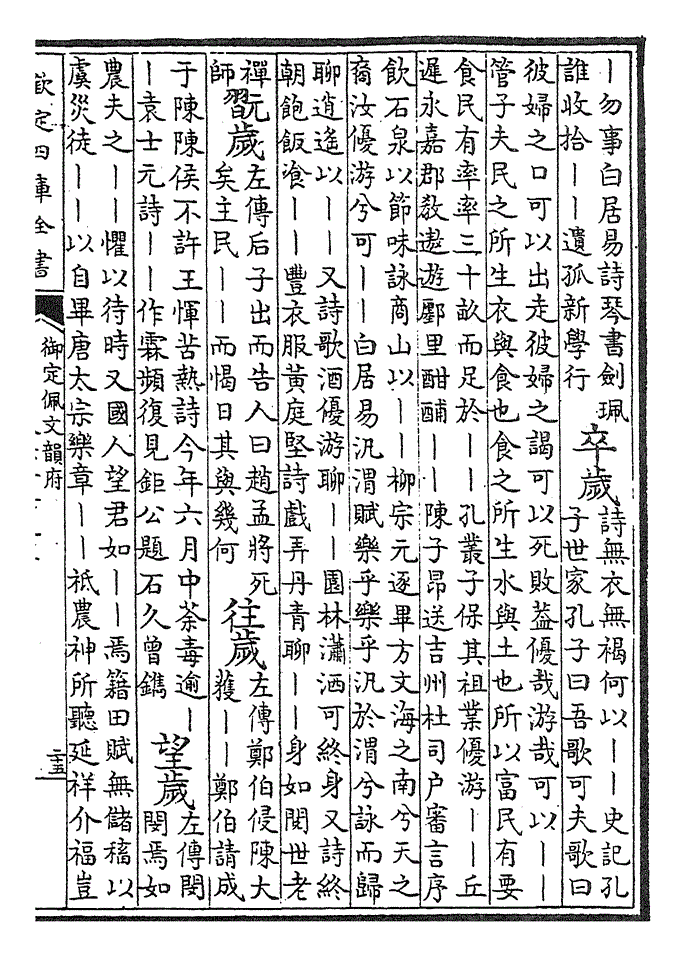 ｜勿事白居易詩琴書劍珮
誰收拾｜｜遺孤新學行
卒歲
詩無衣無褐何以｜｜史記孔
子世家孔子曰吾歌可夫歌曰
彼婦之口可以出走彼婦之謁可以死敗蓋優哉游哉可以｜｜
管子夫民之所生衣與食也食之所生水與土也所以富民有要
食民有率率三十畝而足於｜｜孔叢子保其祖業優游｜｜丘
遲永嘉郡敎遨遊鄽里酣酺｜｜陳子昂送吉州杜司户審言序
飲石泉以節味詠商山以｜｜柳宗元逐畢方文海之南兮天之
裔汝優游兮可｜｜白居易汎渭賦樂乎樂乎汎於渭兮詠而歸
聊逍遙以｜｜又詩歌酒優游聊｜｜園林瀟洒可終身又詩終
朝飽飯飡｜｜豐衣服黃庭堅詩戲弄丹青聊｜｜身如閱世老
禪
師
翫歲
左傳后子出而告人曰趙孟將死
矣主民｜｜而愒日其與幾何
往歲
左傳鄭伯侵陳大
獲｜｜鄭伯請成
于陳陳侯不許王惲苦熱詩今年六月中荼毒逾｜
｜袁士元詩｜｜作霖頻復見鉅公題石久曾鐫
望歲
左傳閔
閔焉如
農夫之｜｜懼以待時又國人望君如｜｜焉籍田賦無儲稸以
虞災徒｜｜以自畢唐太宗樂章｜｜祗農神所聽延祥介福豈
欽定四庫全書
御定佩文韻府
二十五